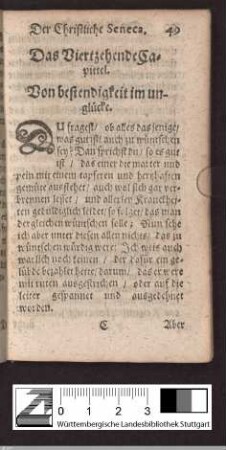 Der Christliche Seneca. 49
Das Viertzehende Ca-
pittel.
Von bestendigkeit im un-
glücke.
DU fragest / ob alles das jenige/
was gut ist auch zu wünschen
sey? Dan sprichst du / so es gut
ist / das einer die marter und
pein mit einem tapferen und hertzhaften
gemüte ausstehet / auch wol sich gar ver-
brennen lesset / und allerley Kranckhei-
ten gedultiglich leidet / so folget / das man
der gleichen wünschen solle ; Nun sehe
ich aber unter diesen allen nichts / das zu
wünschen würdig were: Ich weis auch
warlich noch keinen / der dafür ein ge-
lübde bezahlet hette / darum / das er were
mit ruten ausgestrichen / oder auf die
leiter gespannet und ausgedehnet
worden.
C Aber
0 1 2 3 4 5 cm
Württembergische Landesbibliothek Stuttgart